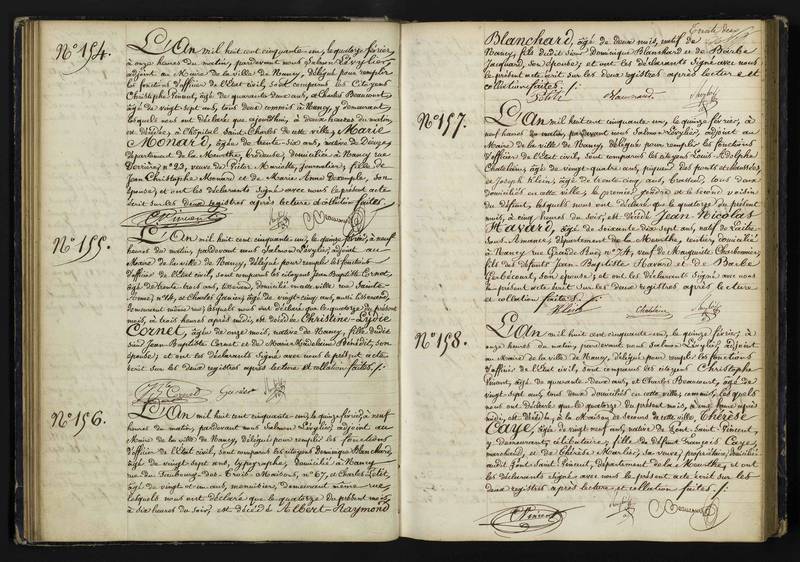 N.° 154.
L'An mil huit cent cinquante-un, le quatorze février,
à onze heures du matin, pardevant nous Salmon Lévylier,
adjoint au Maire de la ville de Nancy, délégué pour remplir
les fonctions d'officier de l'état civil, sont comparus les Citoyens
Christophe Vincent, âgé de quarante deux ans, et Charles Beaucourt,
âgé de vingt sept ans, tous deux commis à Nancy, y demeurant
lesquels nous ont déclaré que aujourd'hui, à deux heures du matin,
est décédée, à l'hôpital Saint Charles de cette ville, Marie
Monard, âgée de trente-six ans, native de
département de la Meurthe, brodeuse, domiciliée à Nancy rue
n.° 23, veuve de Journalier, fille de
Jean Christophe Monard et de Marie Anne son
épouse; et ont les déclarants signé avec nous le présent acte
écrit sur les deux registres après lecture et collation faites.
C Vincent Beaucourt
N.° 155.
L'An mil huit cent cinquante-un, le quinze février, à neuf
heures du matin, pardevant nous Salmon Lévylier, adjoint au
Maire de la ville de Nancy, délégué pour remplir les fonctions
d'officier de l'état civil, sont comparus les citoyens Jean Baptiste Cornet,
âgé de trente trois ans, domicilié en cette ville rue Sainte-
n.° 14, et Charles Garnier, âgé de vingt-cinq ans, aussi
demeurant même rue; lesquels nous ont déclaré que le quatorze du présent
mois, à trois heures après midi, est décédée Christine-Lydie
Cornet, âgée de onze mois, native de Nancy, fille dudit
sieur Jean Baptiste Cornet et de Marie Magdeleine Bénédit, son
épouse; et ont les déclarants signé avec nous le présent acte
écrit sur les deux registres après lecture et collation faites.
Cornet Garnier
N.° 156.
L'An mil huit cent cinquante-un, le quinze février, à neuf
heures du matin, pardevant nous Salmon Lévylier, adjoint au
Maire de la ville de Nancy, délégué pour remplir les fonctions
d'officier de l'état civil, sont comparus les citoyens Dominique Blanchard,
âgé de vingt-sept ans, typographe, domicilié à Nancy
rue du Faubourg des Trois Maisons, n.° 67, et Charles Petit,
âgé de vingt et un ans, menuisier, demeurant même rue,
lesquels nous ont déclaré que le quatorze du présent mois,
à dix heures du soir, est décédé Albert-Raymond
Blanchard, âgé de deux mois, natif de
Nancy, fils dudit sieur Dominique Blanchard et de Barbe
Jacquard, son épouse; et ont les déclarants signé avec nous
le présent acte écrit sur les deux registres après lecture et
collation faites.
Petit Blanchard
N.° 157.
L'An mil huit cent cinquante-un, le quinze février, à
neuf heures du matin, pardevant nous Salmon Lévylier, adjoint au
Maire de la ville de Nancy, délégué pour remplir les fonctions
d'officier de l'état civil, sont comparus les citoyens Louis Adolphe
Chatelain, âgé de vingt-quatre ans, piqueur des ponts et chaussées,
et Joseph Klein, âgé de trente cinq ans, brasseur, tous deux
domiciliés en cette ville, le premier gendre et le second voisin
du défunt, lesquels nous ont déclaré que le quatorze du présent
mois, à cinq heures du soir, est décédé Jean-Nicolas
Havard, âgé de soixante-dix sept ans, natif de Laître-
sous-Amance, département de la Meurthe, rentier, domicilié
à Nancy rue Grande Rue, n.° 74, veuf de Marguerite Charbonnier,
fils des défunts Jean Baptiste Havard et de Barbe
Gerbécourt, son épouse; et ont les déclarants signé avec nous
le présent acte écrit sur les deux registres après lecture
et collation faites.
Klein Chatelain
N.° 158.
L'An mil huit cent cinquante-un, le quinze février, à
onze heures du matin, pardevant nous Salmon Lévylier, adjoint
au Maire de la ville de Nancy, délégué pour remplir les fonctions
d'officier de l'état civil, sont comparus les citoyens Christophe
Vincent, âgé de quarante-deux ans, et Charles Beaucourt, âgé de
vingt sept ans, tous deux domiciliés en cette ville, commis, lesquels
nous ont déclaré que le quatorze du présent mois, à une heure après
midi, est décédée, à la Maison de secours de cette ville, Thérèse
Caye, âgée de vingt neuf ans, native de Mont-Saint-Vincent,
y demeurant, célibataire, fille de défunt François Caye,
marchand, et de Thérèse Marlier, sa veuve, propriétaire, domiciliée
audit Mont-Saint-Vincent, département de la Meurthe, et ont
les déclarants signé avec nous le présent acte écrit sur les
deux registres après lecture et collation faites.
C Vincent Beaucourt